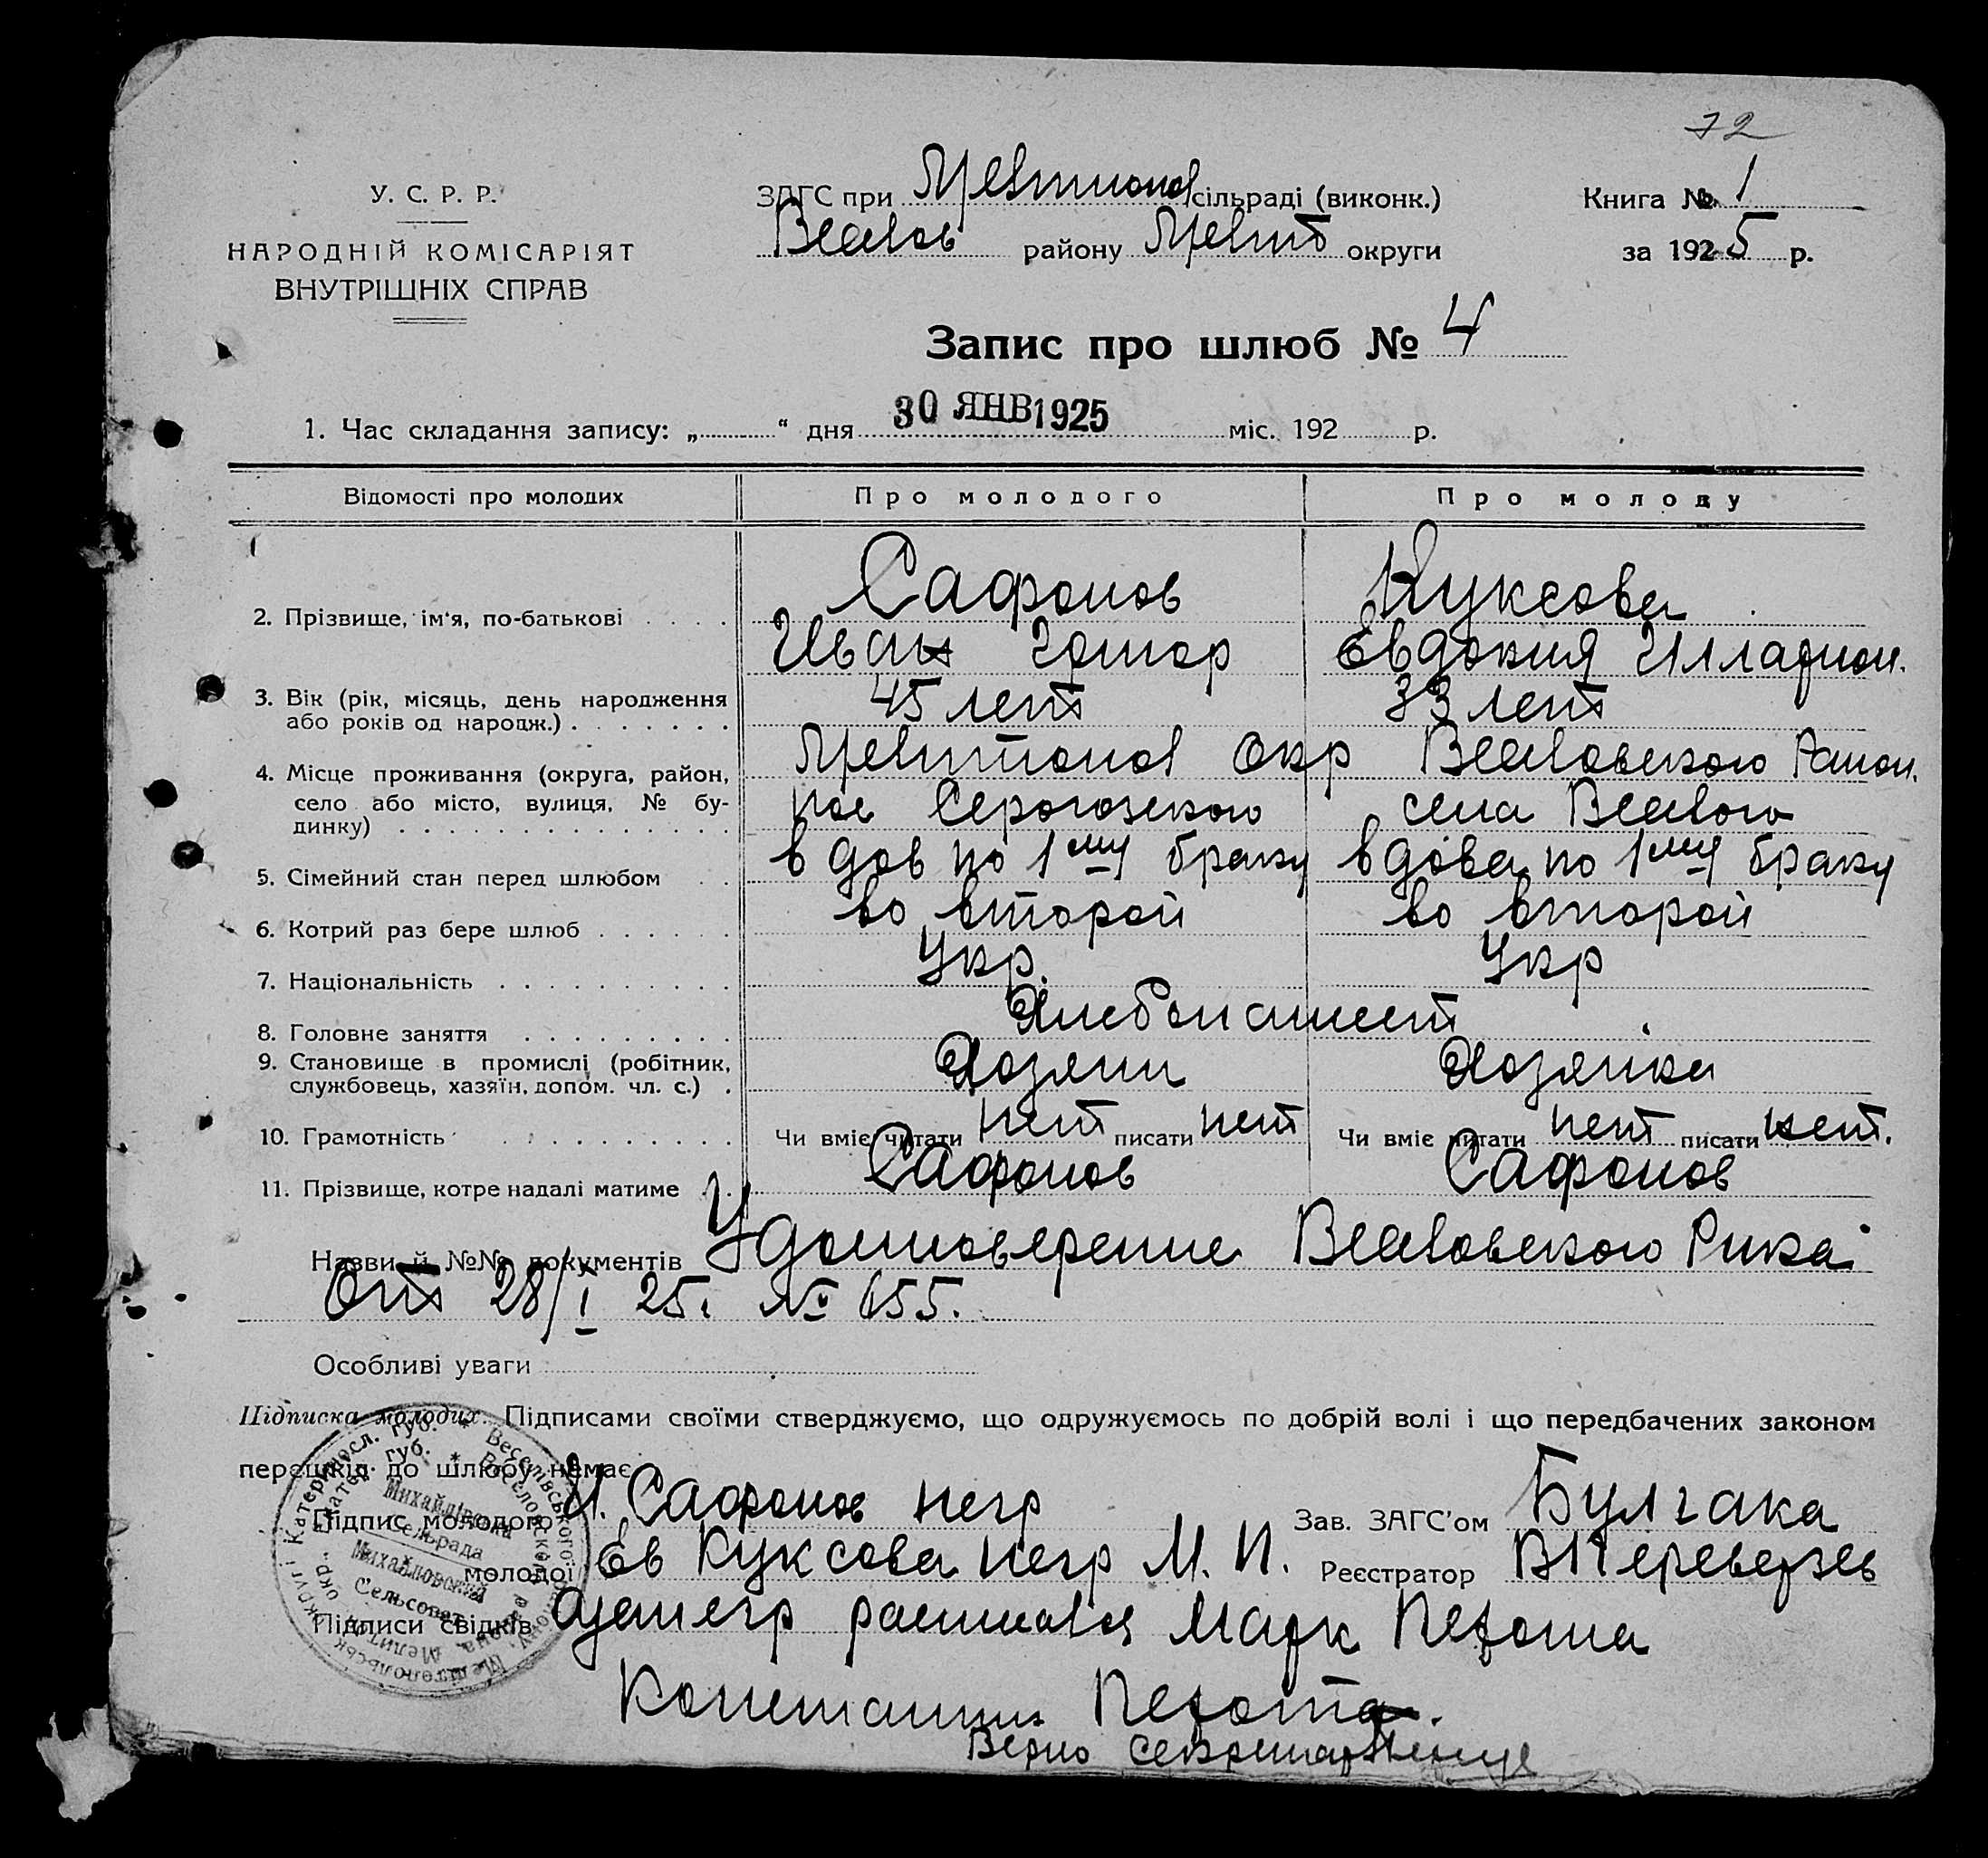 72
У. С. Р. Р.
НАРОДНІЙ КОМІСАРІЯТ
ВНУТРІШНІХ СПРАВ
ЗАГС при сільраді (виконк.)
району округи
Книга № 1
за 1925 р.
Запис про шлюб № 4
1. Час складання запису: „ “ дня 30 ЯНВ 1925 міс. 192 р.
Відомості про молодих
Про молодого
Про молоду
2. Прізвище, ім'я, по-батькові
Сафонов
Иван
Куксова
Евдокия Илларион.
3. Вік (рік, місяць, день народження
або років од народж.)
45 лет
33 лет
4. Місце проживання (округа, район,
село або місто, вулиця, № бу-
динку)
окр
Веселовского Район.
пос Серогозского
села Веселого
5. Сімейний стан перед шлюбом
вдов по 1му браку
вдова по 1му браку
6. Котрий раз бере шлюб
во второй
во второй
7. Національність
Укр.
Укр
8. Головне заняття
Хлебопашест
9. Становище в промислі (робітник,
службовець, хазяїн, допом. чл. с.)
Хозяин
Хозяйка
10. Грамотність
Чи вміє читати нет писати нет
Чи вміє читати нет писати нет.
11. Прізвище, котре надалі матиме
Сафонов
Сафонов
Назви й №№ документів Удостоверение Веселовского Рика
От 28/I 25. № 655.
Особливі уваги
Підписка молодих. Підписами своїми стверджуємо, що одружуємось по добрій волі і що передбачених законом
перешкід до шлюбу немає
Підпис молодого И. Сафонов негр
Зав. ЗАГС'ом Булгака
молодої Ев Куксова негр М. П.
Реєстратор В Переверзев
Підписи свідків расписался Марк
Константин
Верно секретарь
Михайлівська
сельрада
Михайловский
Сельсовет